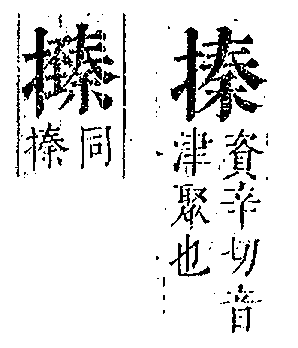 搸
資辛切音
津聚也
同
搸